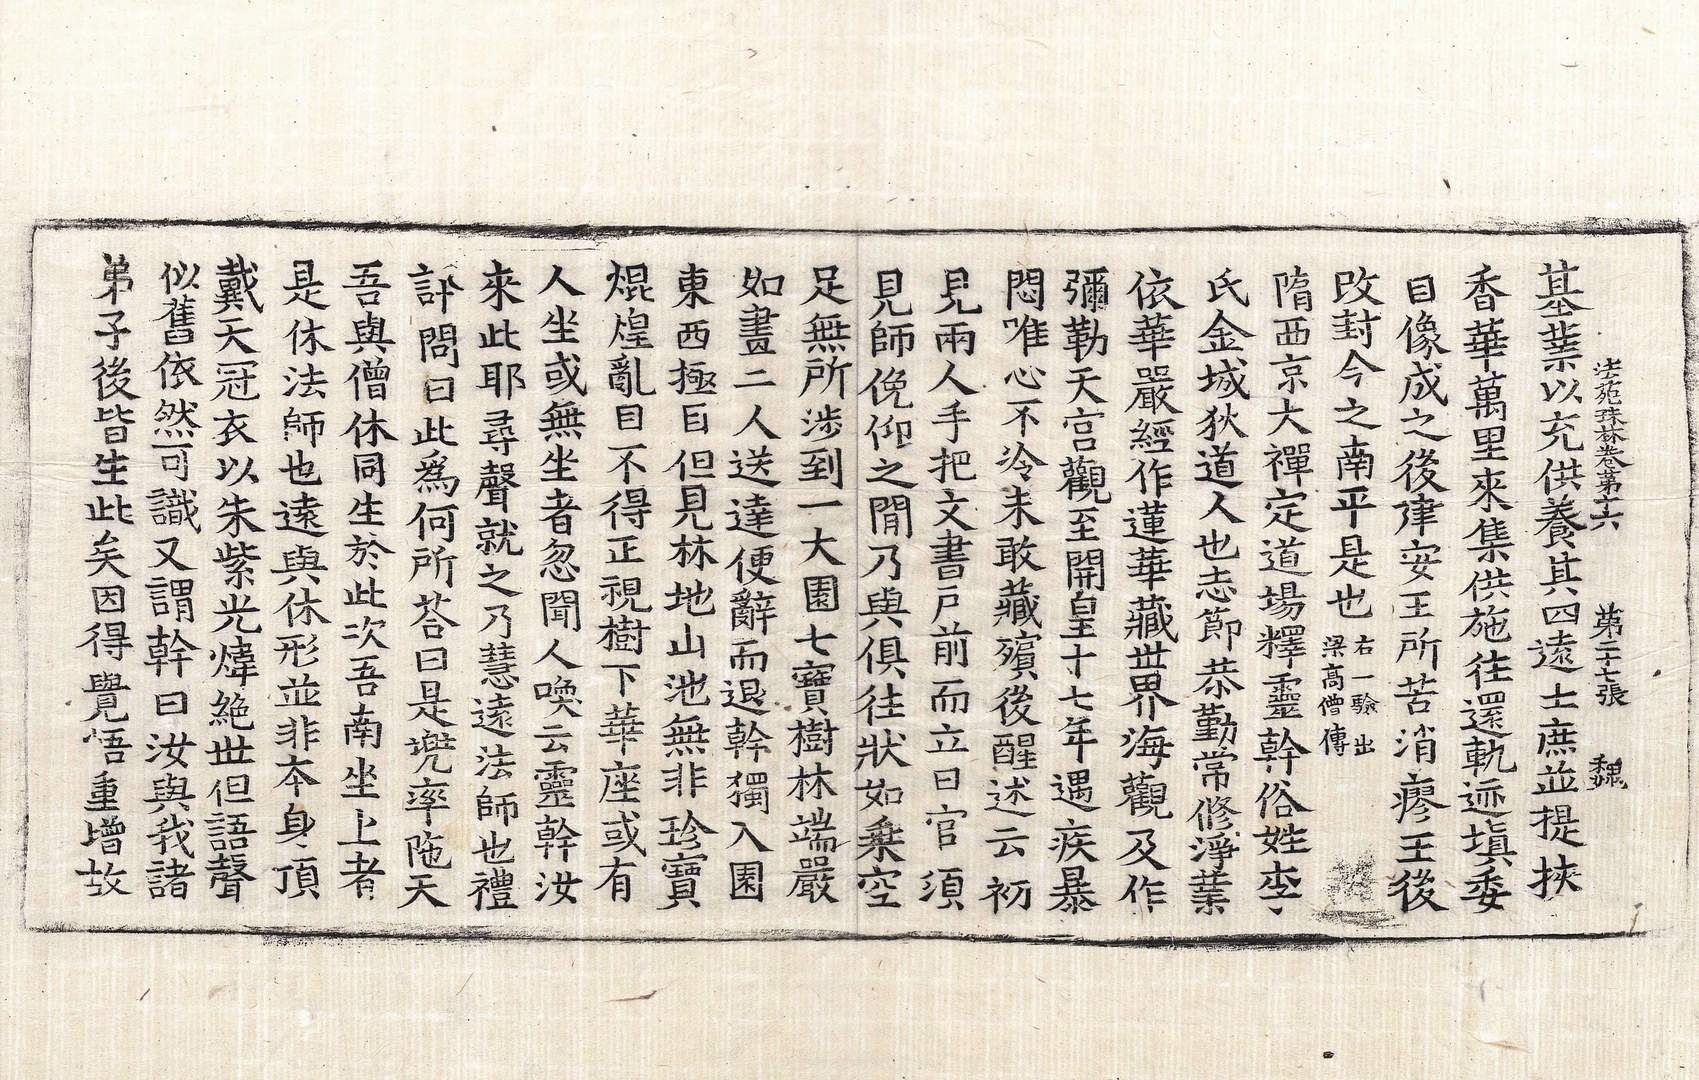 法苑珠林卷第十六　第二十七張　魏
基業以充供養其四遠士庶並提挾
香華萬里來集供施往還軌迹塡委
自像成之後建安王所苦消瘳王後
改封今之南平是也右一驗出梁高僧傳
隋西京大禪定道場釋靈幹俗姓李
氏金城狄道人也志節恭勤常修淨業
依華嚴經作蓮華藏世界海觀及作
彌勒天宮觀至開皇十七年遇疾暴
悶唯心不冷未敢藏殯後醒述云初
見兩人手把文書戸前而立曰官須
見師俛仰之閒乃與俱往狀如乗空
足無所涉到一大園七寶樹林端嚴
如畫二人送達便辭而退幹獨入園
東西極目但見林地山池無非珍寶
焜煌亂目不得正視樹下華座或有
人坐或無坐者忽聞人喚云靈幹汝
來此耶尋聲就之乃慧遠法師也禮
訃問曰此爲何所荅曰是兜率陁天
吾與僧休同生於此次吾南坐上者
是休法師也遠與休形並非本身頂
戴天冠衣以朱紫光煒絶世但語聲
似舊依然可識又謂幹曰汝與我諸
弟子後皆生此矣因得覺悟重增故